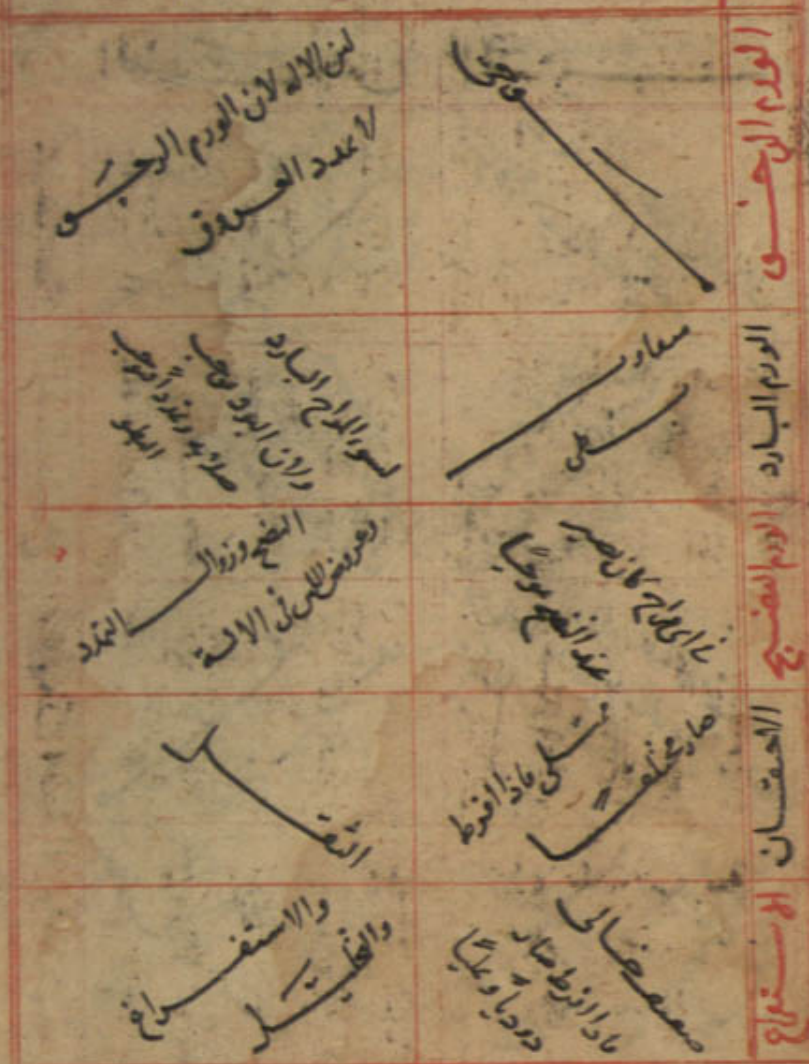 الورم الرخو
موجى
لين الاله لان الورم الرخو
لا يمدد العروق
الورم البارد
متفاوت
بطى
لسوء المزاج البارد
ولان البرد يوجب
صلابة وتمددا يوجب
البطو
الورم النضيج
فى اى مزاج كان يصير
عند النضج موجيا
النضج وزوال التمدد
وعروض اللين فى الالة
الاحتقان
ممتلى فاذا افرط
صار مختلفا
الثقل
الاستفراغ
صغير خالى
فاذا افرط صار
دوديا ونمليا
والاستفراغ
والتحليل